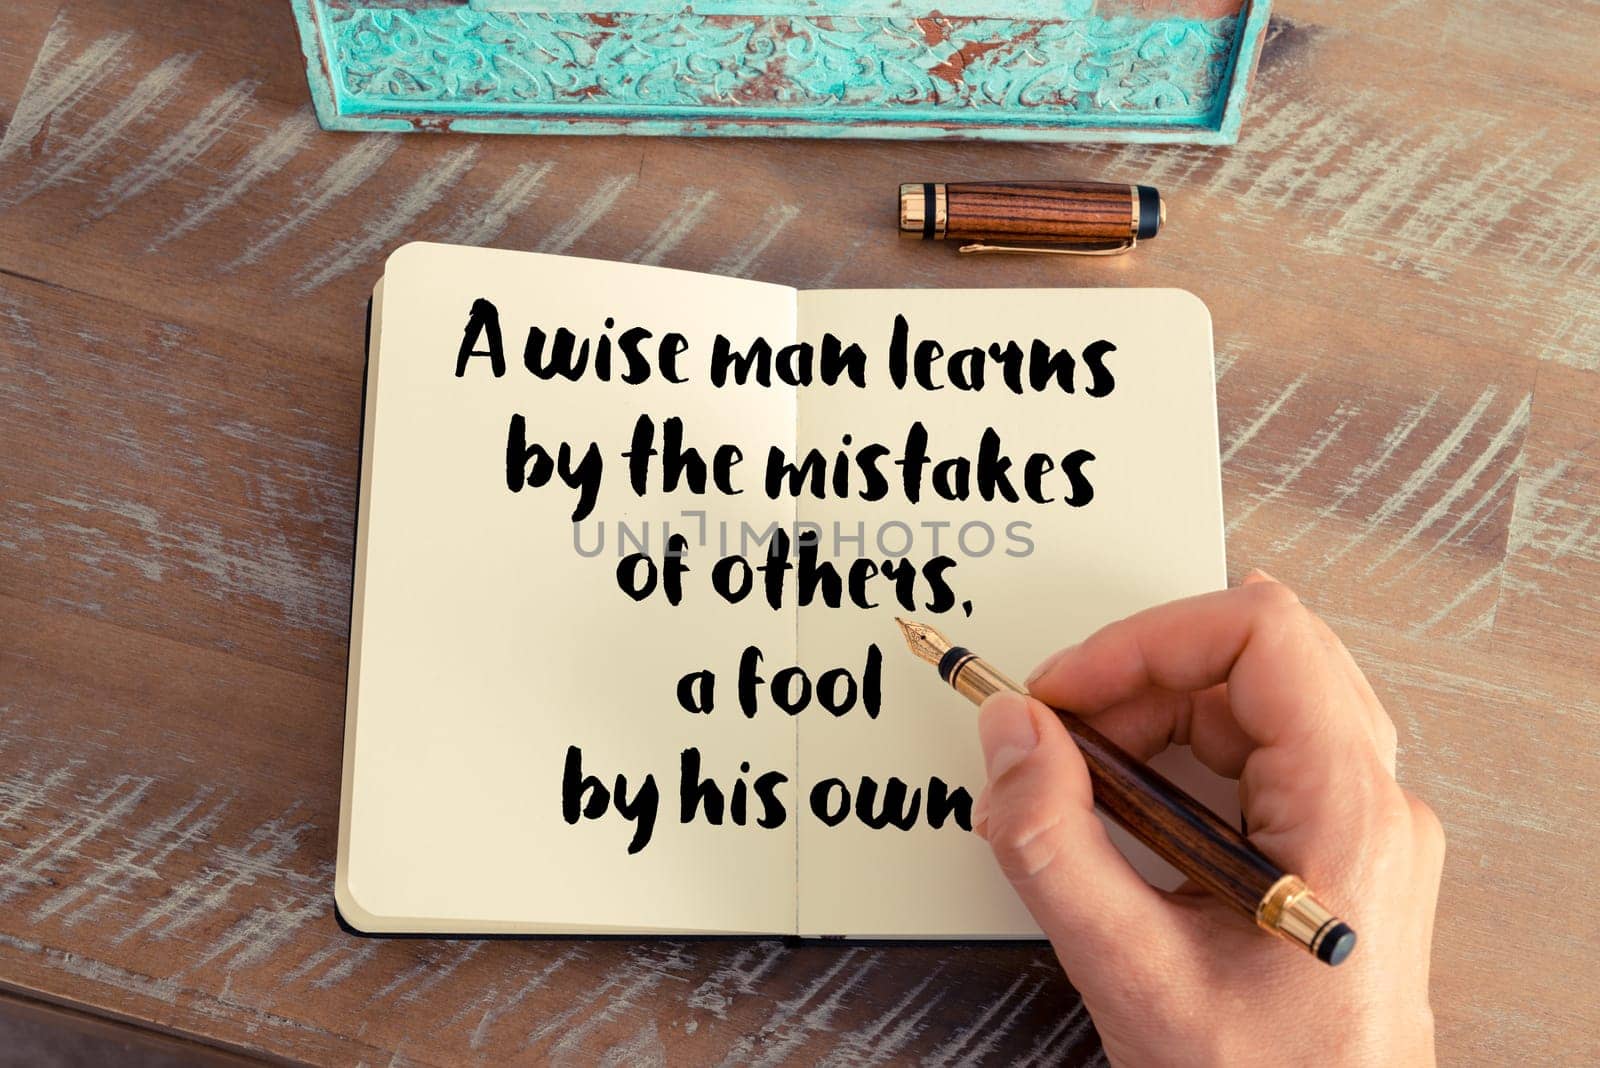 A wise man learns
by the mistakes
of others,
a fool
by his own
UNLIMPHOTOS